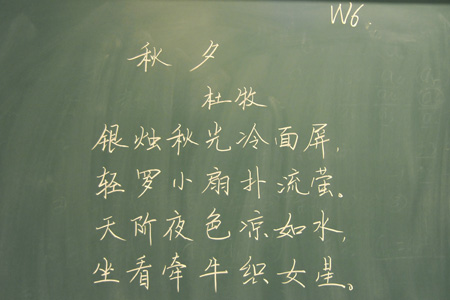 W6:
秋夕
杜牧
银烛秋光冷面屏,
轻罗小扇扑流萤。
天阶夜色凉如水,
坐看牵牛织女星。